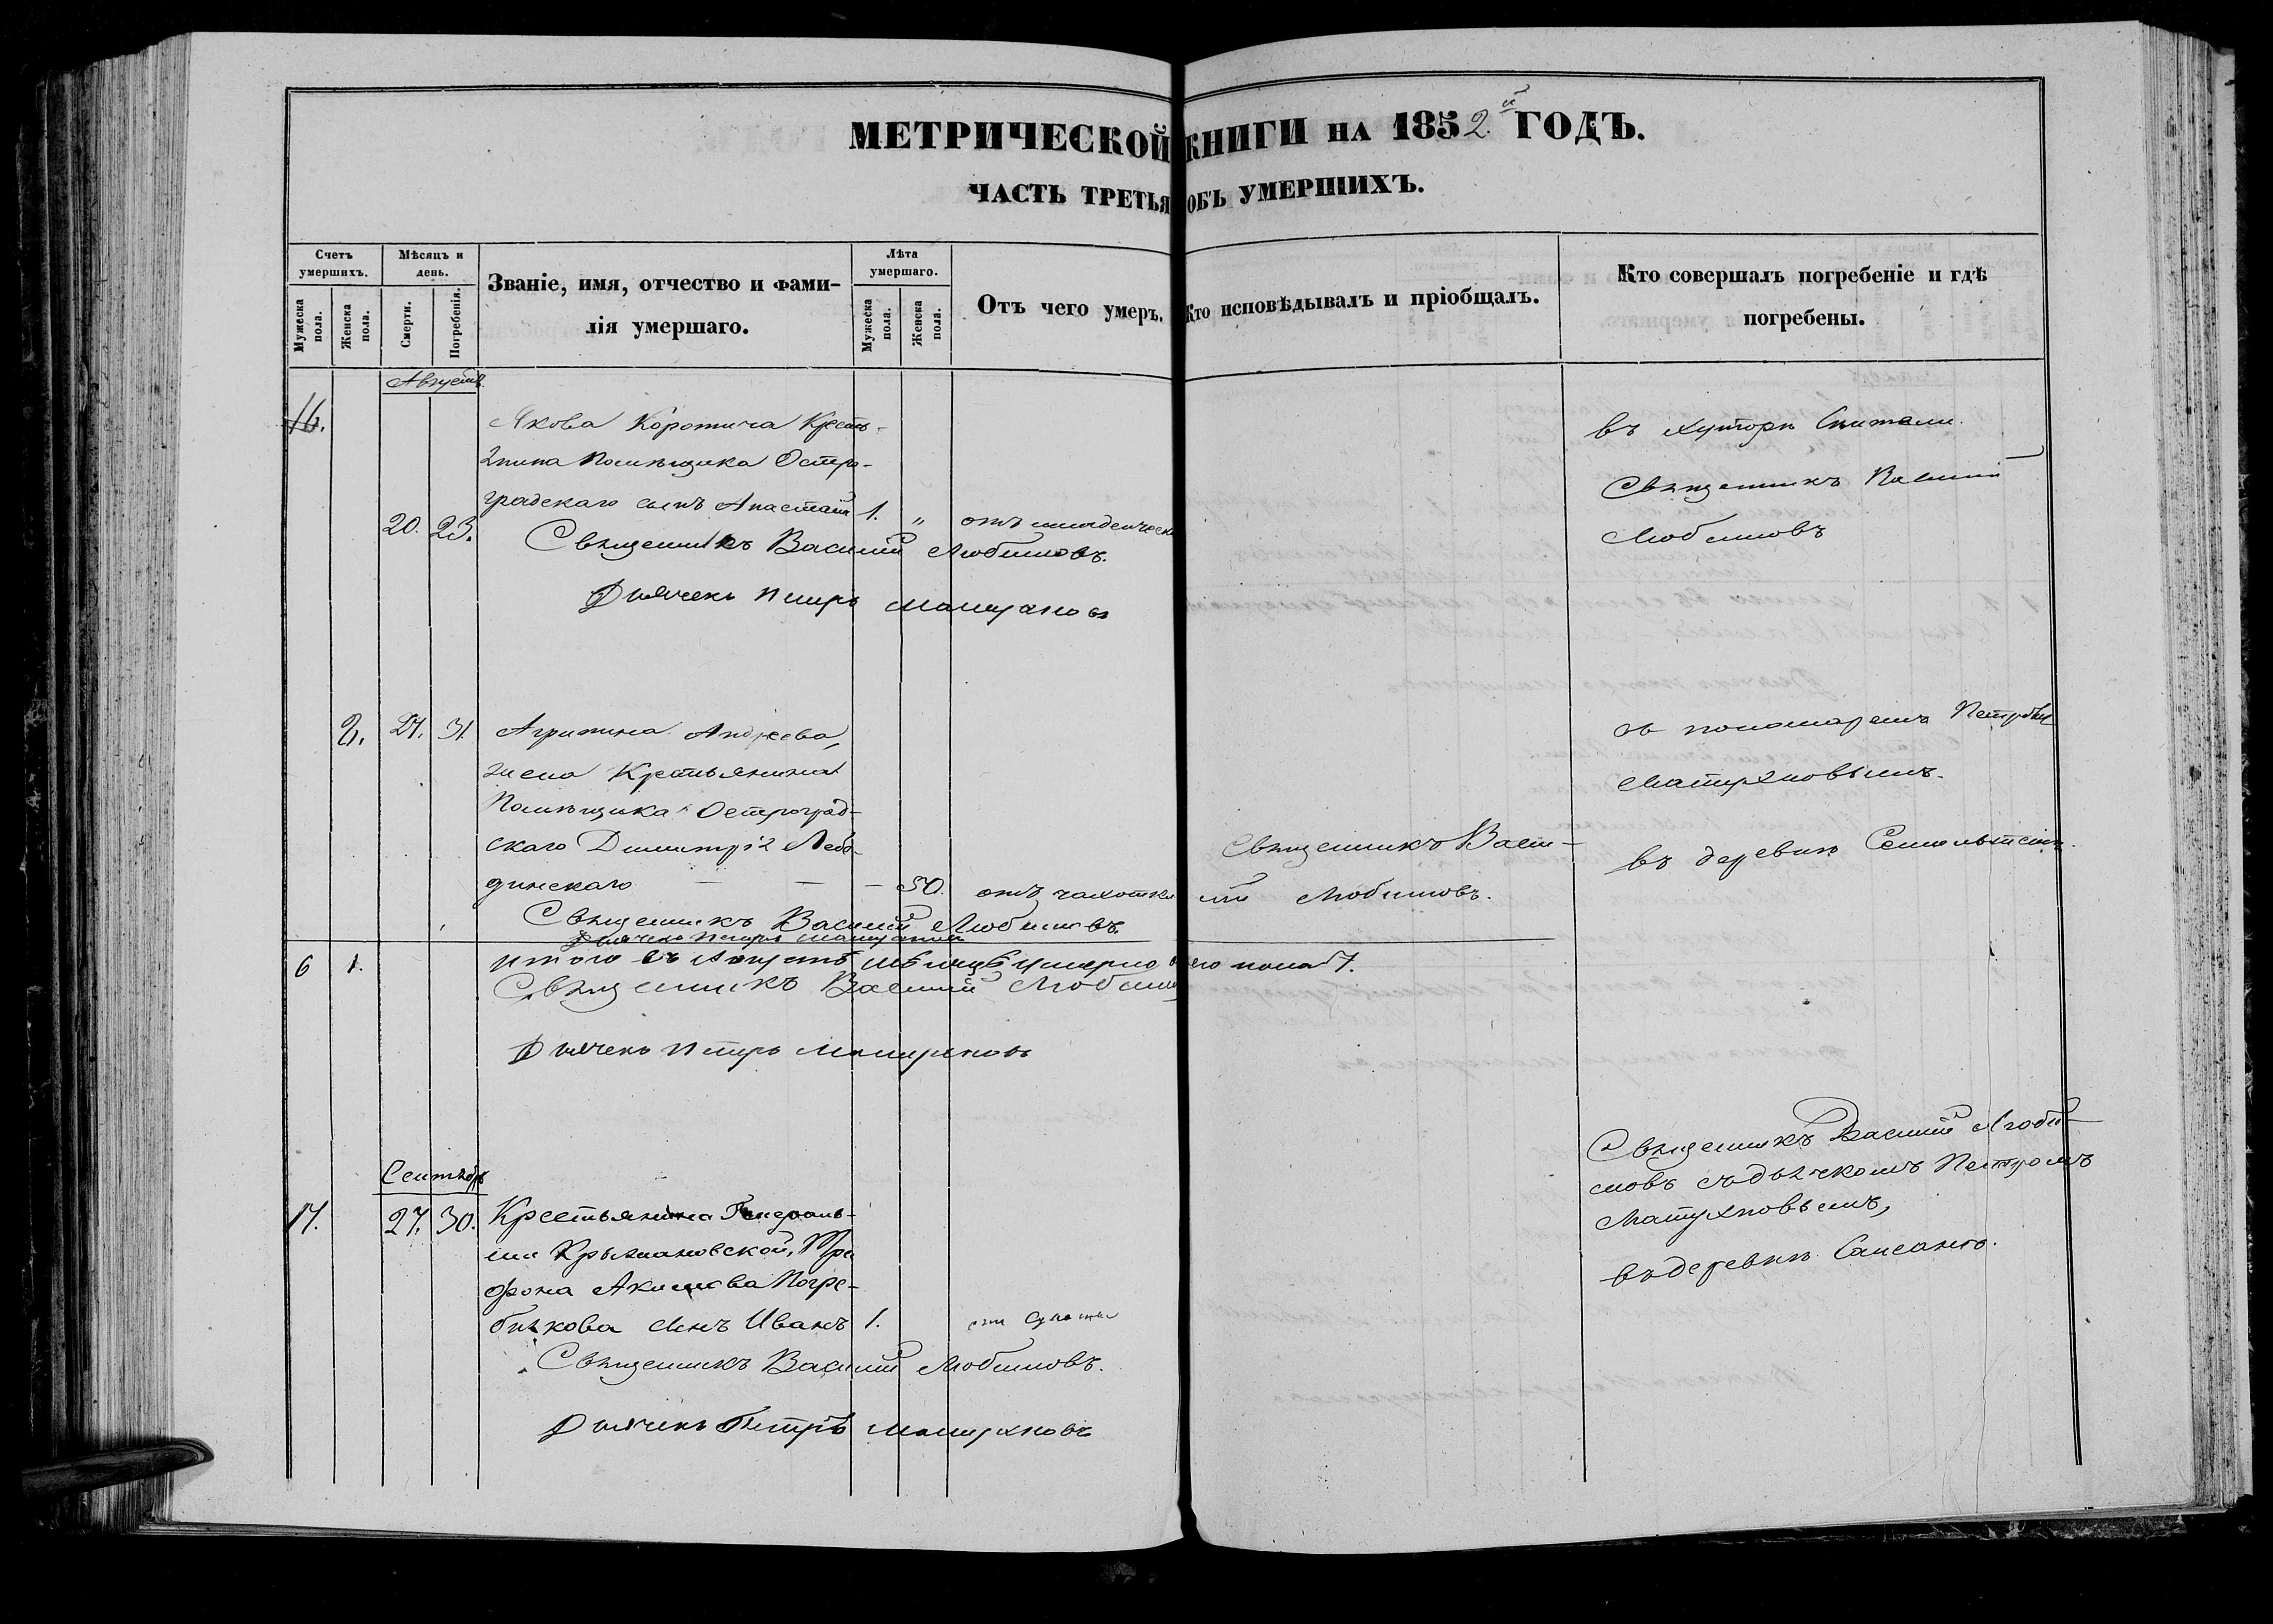 МЕТРИЧЕСКОЙ КНИГИ НА 1852.й ГОДЪ.
ЧАСТЬ ТРЕТЬЯ ОБЪ УМЕРШИХЪ.
Счетъ умершихъ.
Мужеска пола.
Женска пола.
Мѣсяцъ и день.
Смерти.
Погребенія.
Званіе, имя, отчество и фами-
лія умершаго.
Лѣта умершаго.
Мужеска пола.
Женска пола.
Отъ чего умеръ.
Кто исповѣдывалъ и пріобщалъ.
Кто совершалъ погребеніе и гдѣ
погребены.
Августъ.
16.
Якова Коротича Кресть-
янина Помѣщика Остро-
градскаго сынъ Анастасій 1. "
20. 23.
Священникъ Василій Любимовъ.
Дьячекъ Петръ Матухновъ
въ хуторѣ
Священникъ Василій
Любимовъ
2. 27. 31. Агрипина Андреева,
жена Крестьянина
Помѣщика Остроград-
скаго Димитрія Лебе-
динскаго — — — 50. отъ чахотки
Священникъ Васи-
лій Любимовъ.
Священникъ Василій Любимовъ.
Дьячекъ Петръ Матухновъ
съ пономаремъ Петромъ
Матухновымъ.
въ деревнѣ
6 1. Итого въ Августѣ мѣсяцѣ умерло обоего пола 7.
Священникъ Василій Любимовъ
Дьячекъ Петръ Матухновъ
Сентябрь
17. 27. 30. Крестьянина Генераль-
ши Крыжановской, Три-
фона Акимова Погре-
бнякова сынъ Иванъ 1.
Священникъ Василій Любимовъ.
Дьячекъ Петръ Матухновъ
Священникъ Василій Люби-
мовъ съ дьячкомъ Петромъ
Матухновымъ,
въ деревнѣ